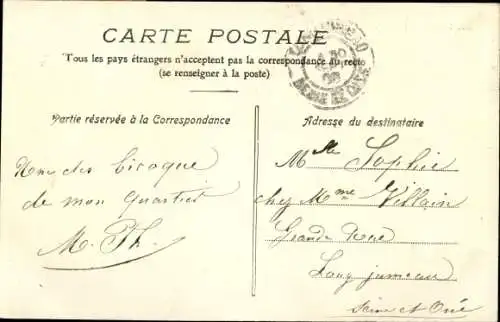 CARTE POSTALE
Tous les pays étrangers n'acceptent pas la correspondance au recto
(se renseigner à la poste)
Partie réservée à la Correspondance
Adresse du destinataire
de mon quartier
M. Th.
Mlle Sophie
chez Mme Villain
Grande Rue
Longjumeau
Seine et Oise